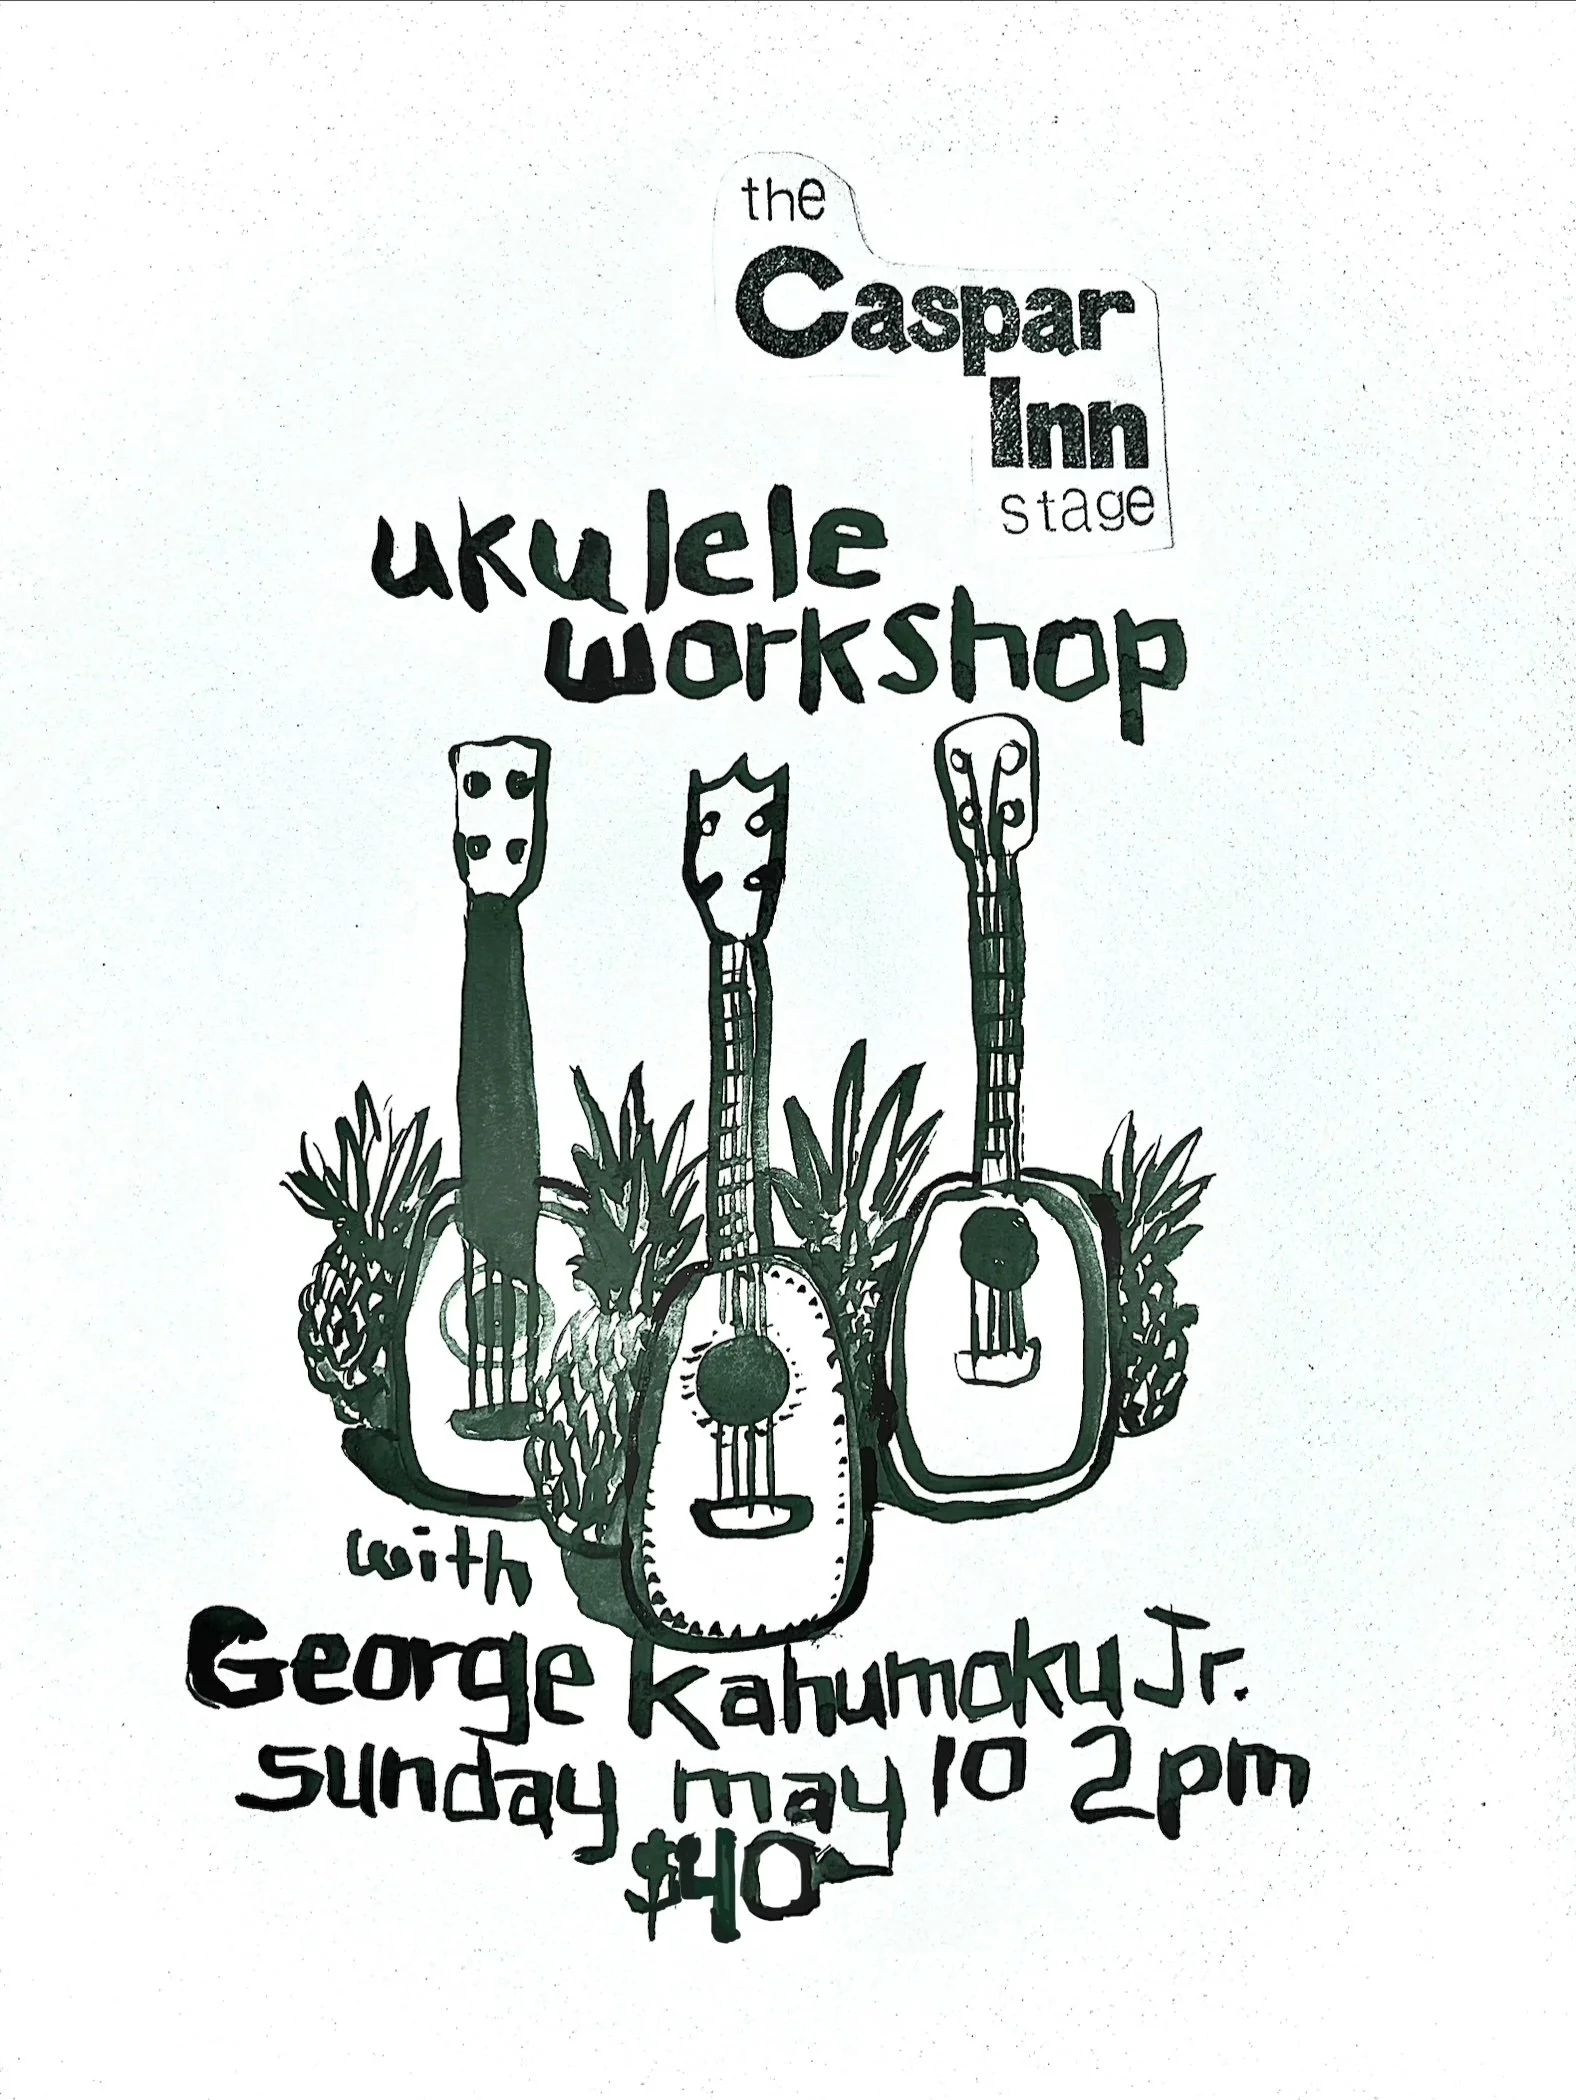 the
Caspar
Inn
stage
ukulele
workshop
with
George Kahumoku Jr.
sunday may 10 2pm
$40